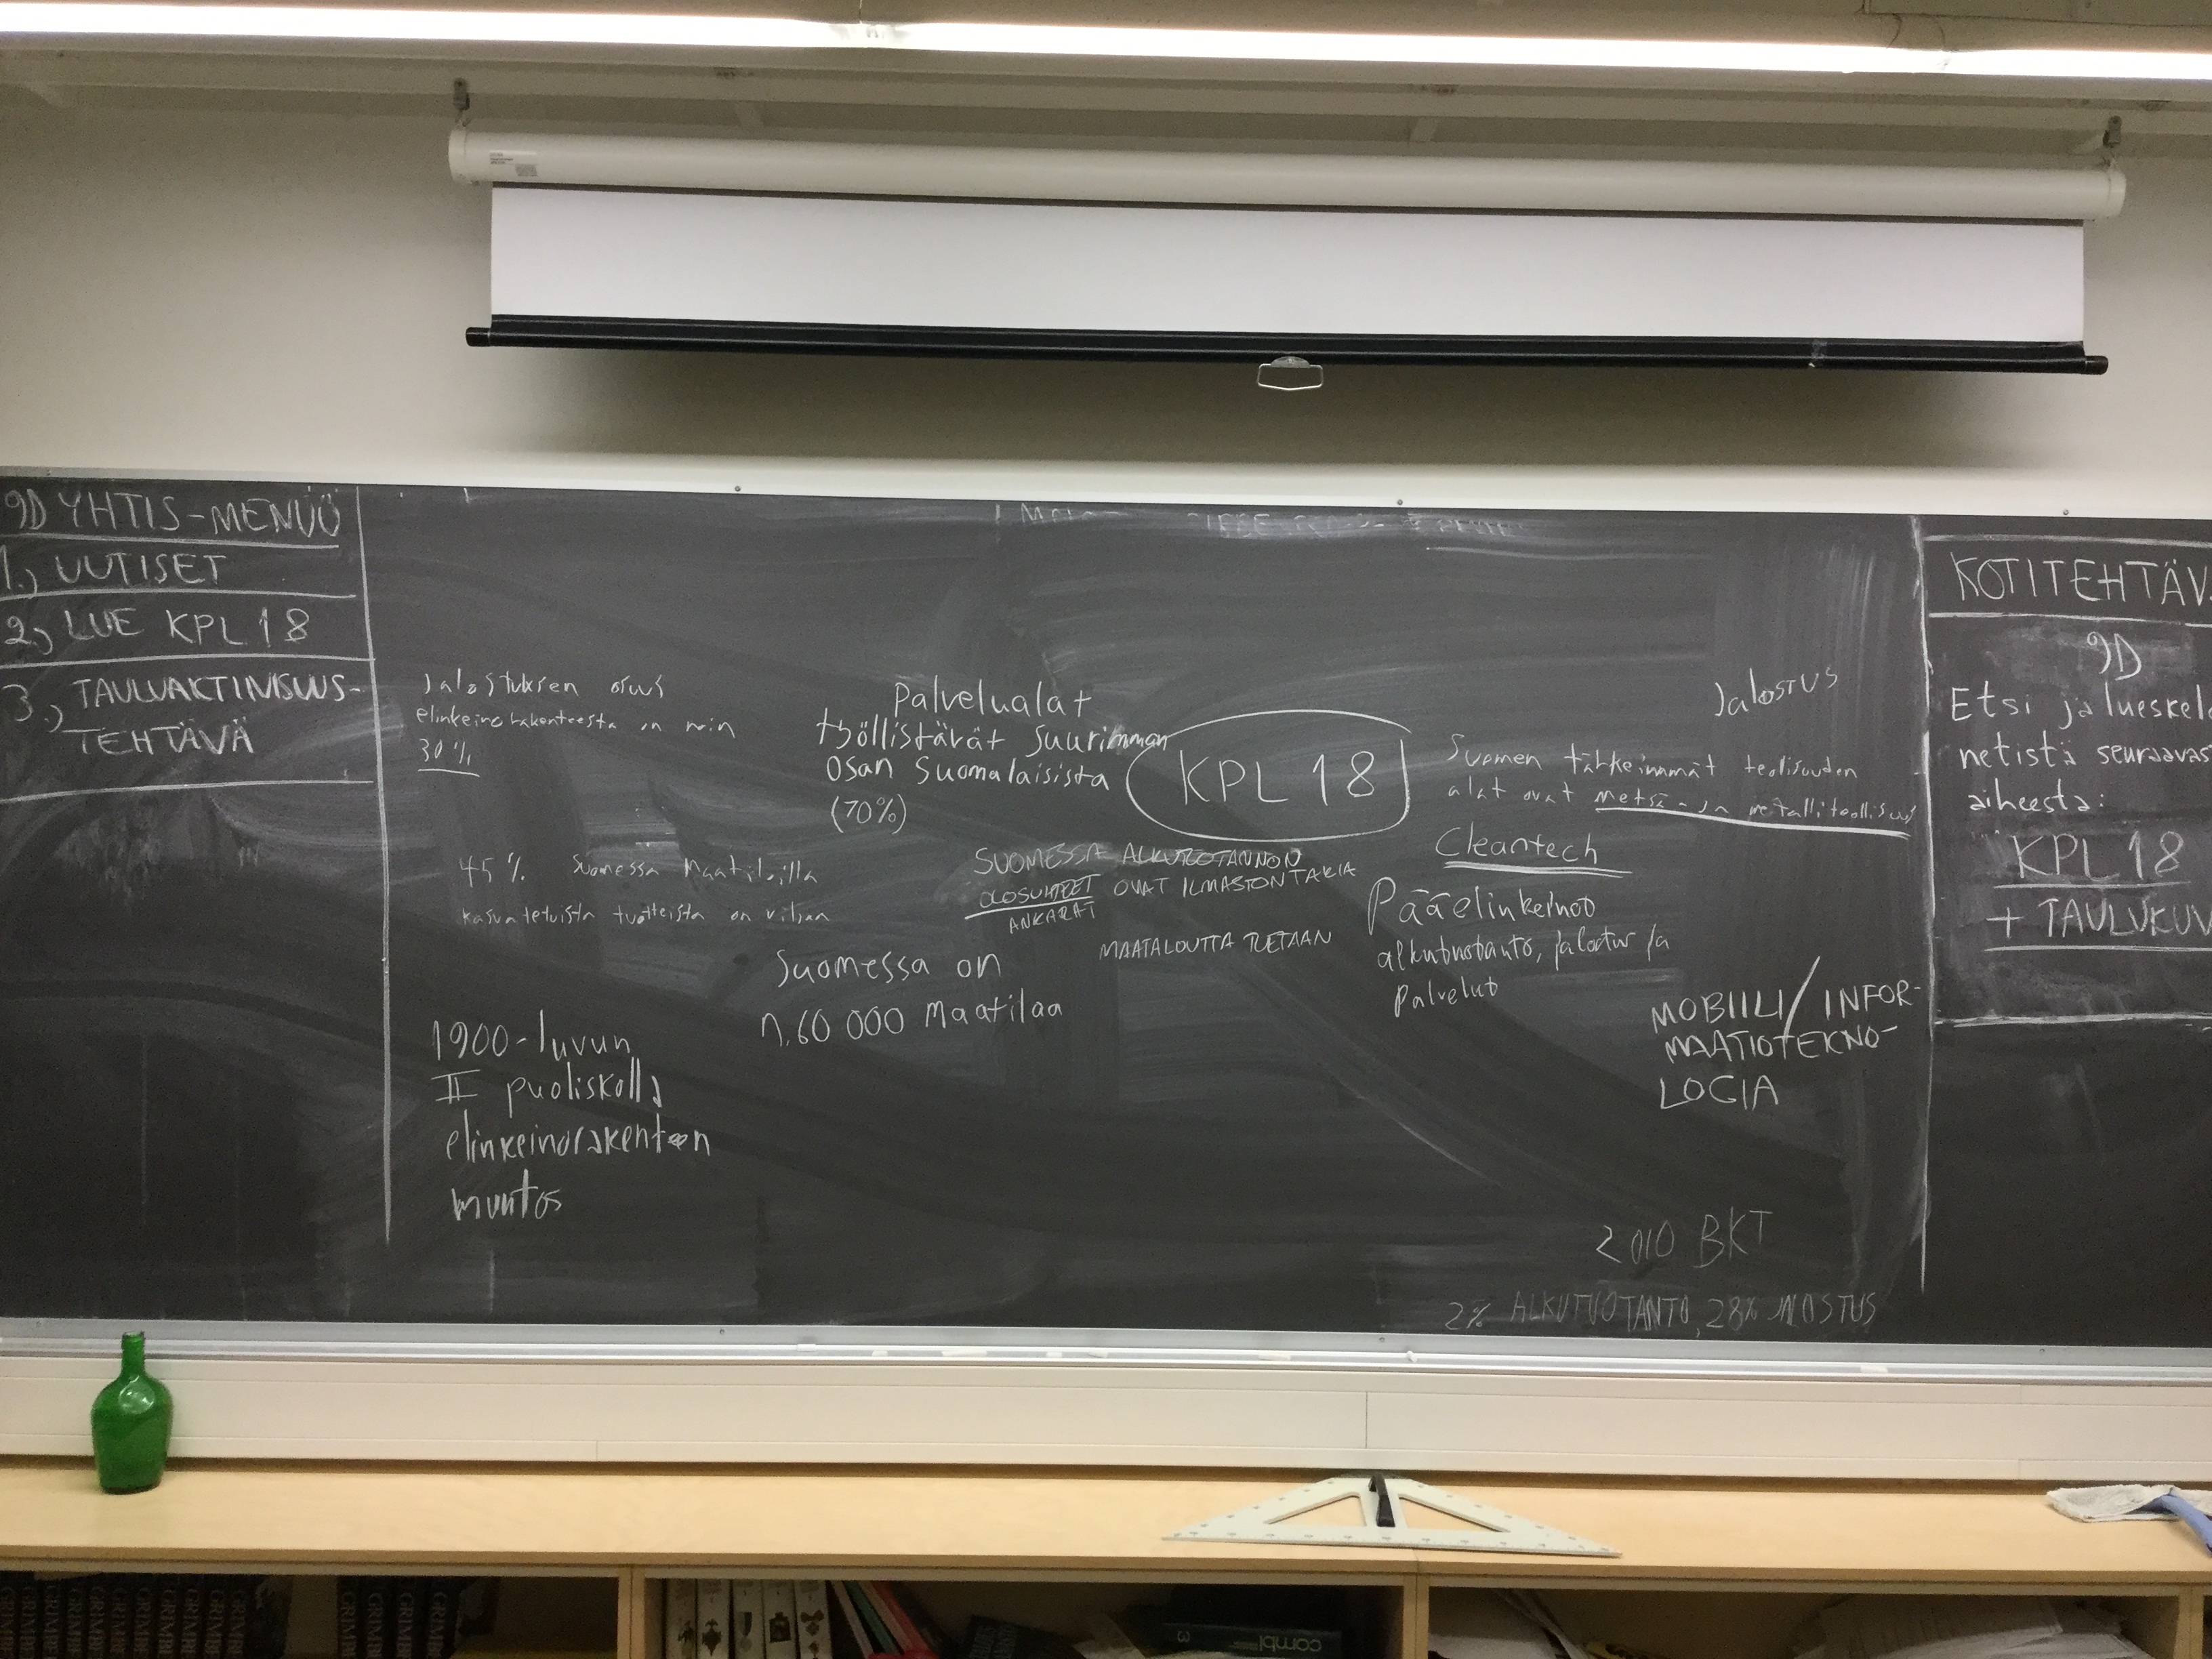 9D YHTIS-MENUU
1.) UUTISET
2.) LUE KPL 18
3.) TAULUAKTIIVISUUS-
TEHTÄVÄ
Jalostuksen osuus
elinkeinorakenteesta on noin
30%
45% Suomessa Maatiloilla
kasvatetuista tuotteista on viljaa
1900-luvun
II puoliskolla
elinkeinorakenteen
muutos
Palvelualat
työllistävät suurimman
osan Suomalaisista
(70%)
KPL 18
SUOMESSA ALKUTUOTANNON
OLOSUHTEET OVAT ILMASTON TAKIA
ANKARAT
MAATALOUTTA TUETAAN
Suomessa on
n. 60 000 Maatilaa
Jalostus
Suomen tärkeimmät teollisuuden
alat ovat metsä- ja metalliteollisuus
Cleantech
Pääelinkeinot
alkutuotanto, jalostus ja
Palvelut
MOBIILI/INFOR-
MAATIOTEKNO-
LOGIA
2010 BKT
2% ALKUTUOTANTO, 28% JALOSTUS
KOTITEHTÄV
9D
Etsi ja lueskele
netistä seuraavas
aiheesta:
KPL 18
+ TAULUKUV
combi
3